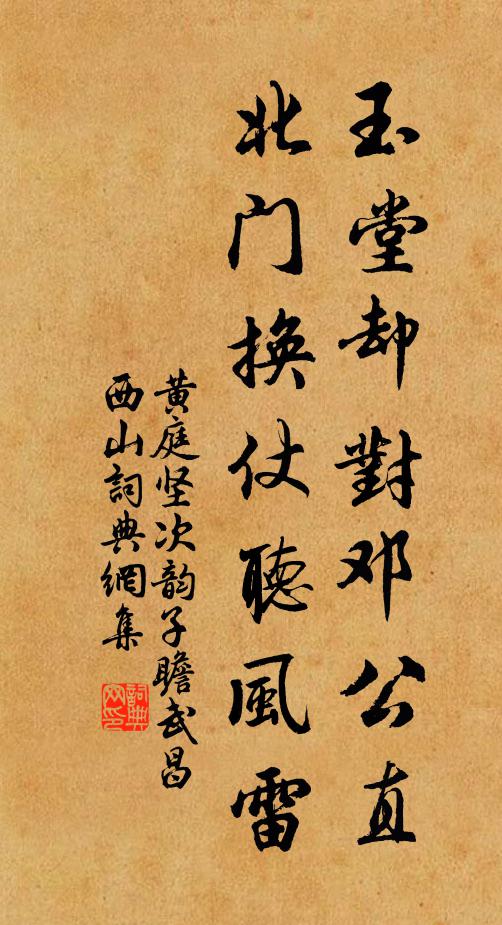 玉堂却對邓公直
北门換仗聽風雷
黄庭坚次韵子瞻武昌
西山詞典網集
詞典网印